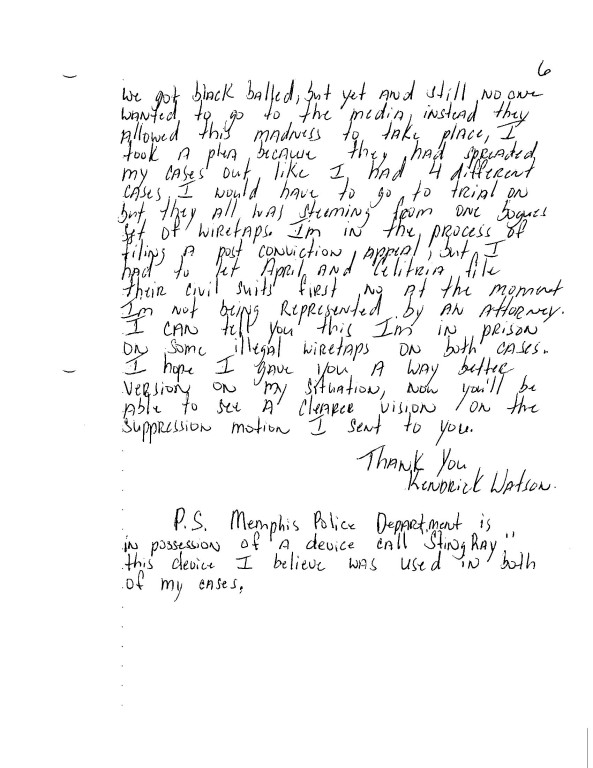 6
we got black balled, but yet and still no one
wanted to go to the media, instead they
allowed this madness to take place, I
took a plea because they had spreaded
my cases out, like I had 4 different
cases I would have to go to trial on
but they all was steming from one bogus
set of wiretaps. Im in the process of
filing a post conviction appeal, but I
had to let April and Celitria file
their civil suits first No at the moment
Im not being represented by an attorney.
I can tell you this Im in prison
on some illegal wiretaps on both cases.
I hope I gave you a way better
version on my situation, now you'll be
able to see a clearer vision on the
suppression motion I sent to you.
Thank You
Kendrick Watson.
P.S. Memphis Police Department is
in possession of a device call StingRay"
this device I believe was used in both
of my cases.